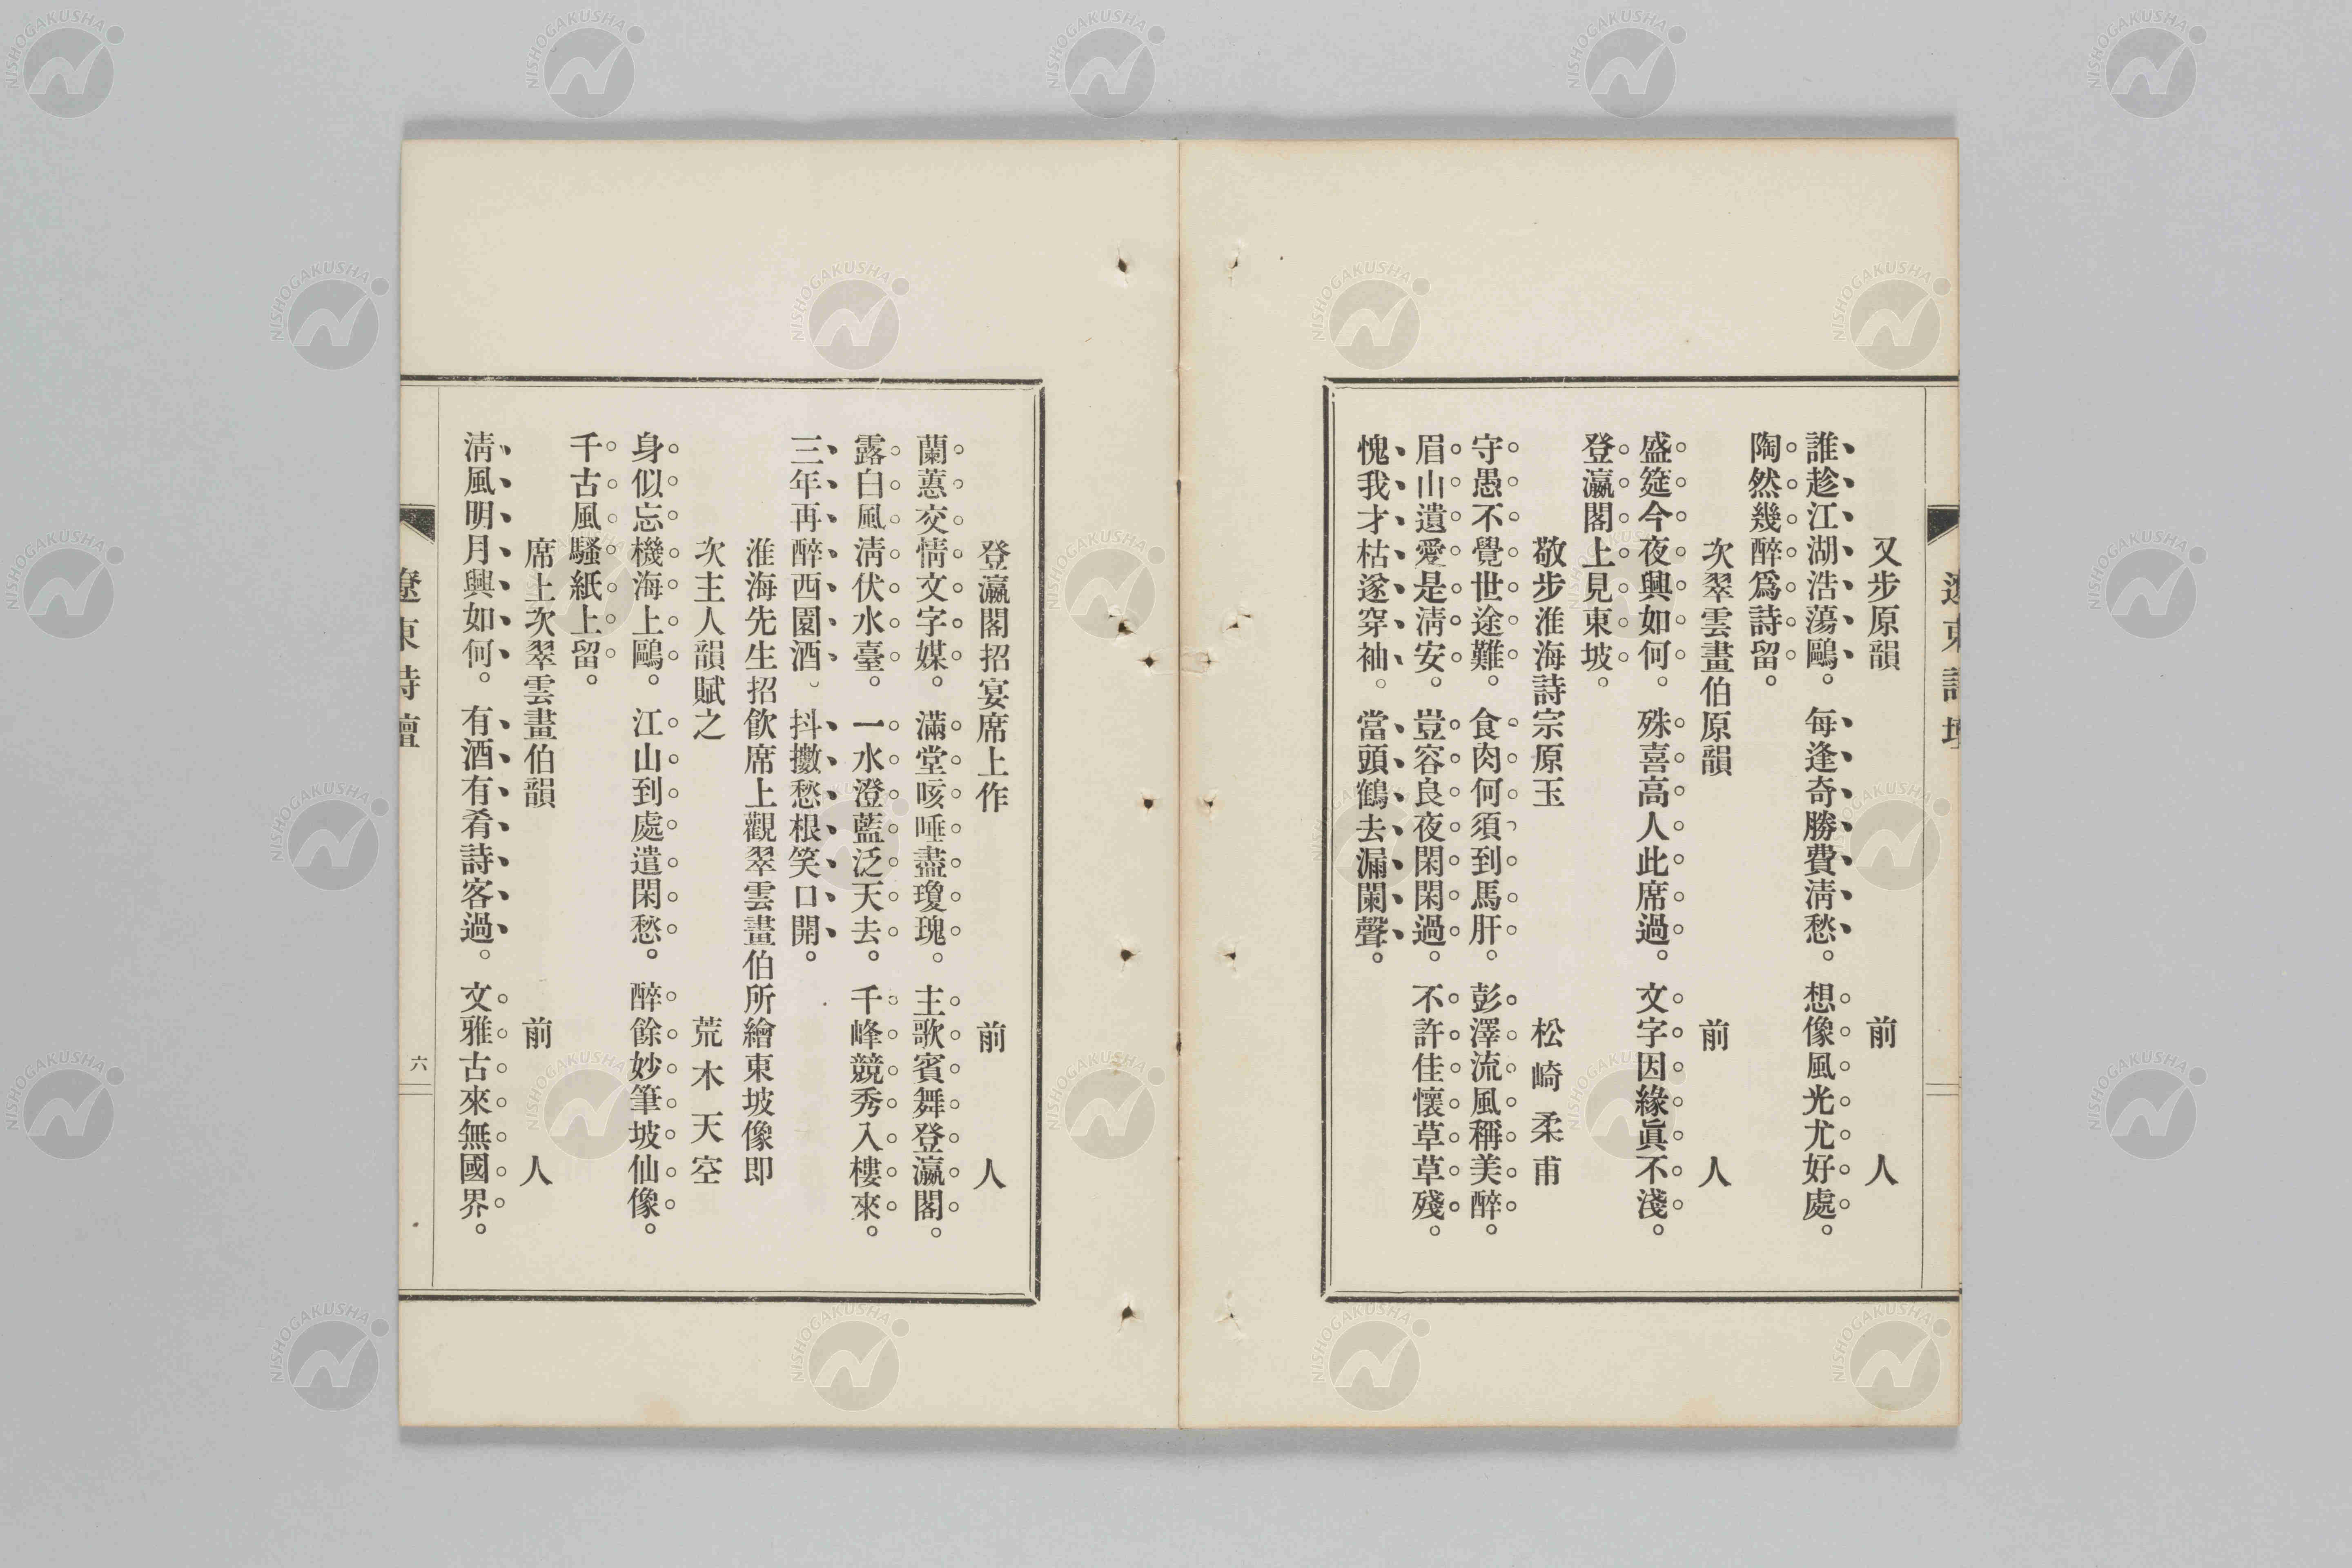 又步原韻　前人
誰趁江湖浩蕩鷗。每逢奇勝費淸愁。想像風光尤好處。
陶然幾醉爲詩留。
次翠雲畫伯原韻　前人
盛筵今夜興如何。殊喜高人此席過。文字因緣眞不淺。
登瀛閣上見東坡。
敬步淮海詩宗原玉　松崎柔甫
守愚不覺世途難。食肉何須到馬肝。彭澤流風稱美醉。
眉山遺愛是淸安。豈容良夜閑閑過。不許佳懷草草殘。
愧我才枯遂穿袖。當頭鶴去漏闌聲。
登瀛閣招宴席上作　前人
蘭蕙交情文字媒。滿堂咳唾盡瓊瑰。主歌賓舞登瀛閣。
露白風淸伏水臺。一水澄藍泛天去。千峰競秀入樓來。
三年再醉西園酒。抖擻愁根笑口開。
淮海先生招飮席上觀翠雲畫伯所繪東坡像即
次主人韻賦之　荒木天空
身似忘機海上鷗。江山到處遣閑愁。醉餘妙筆坡仙像。
千古風騷紙上留。
席上次翠雲畫伯韻　前人
淸風明月興如何。有酒有肴詩客過。文雅古來無國界。
遼東詩壇
六
NISHOGAKUSHA